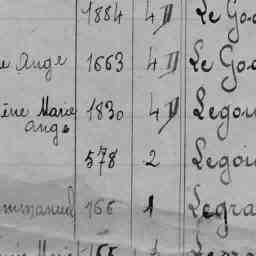 1884 4 II Le Go
Ange 1663 4 II Le Go
Marie 1830 4 II Legou
Ange
578 2 Legoi
mmanuel 166 1 Legra